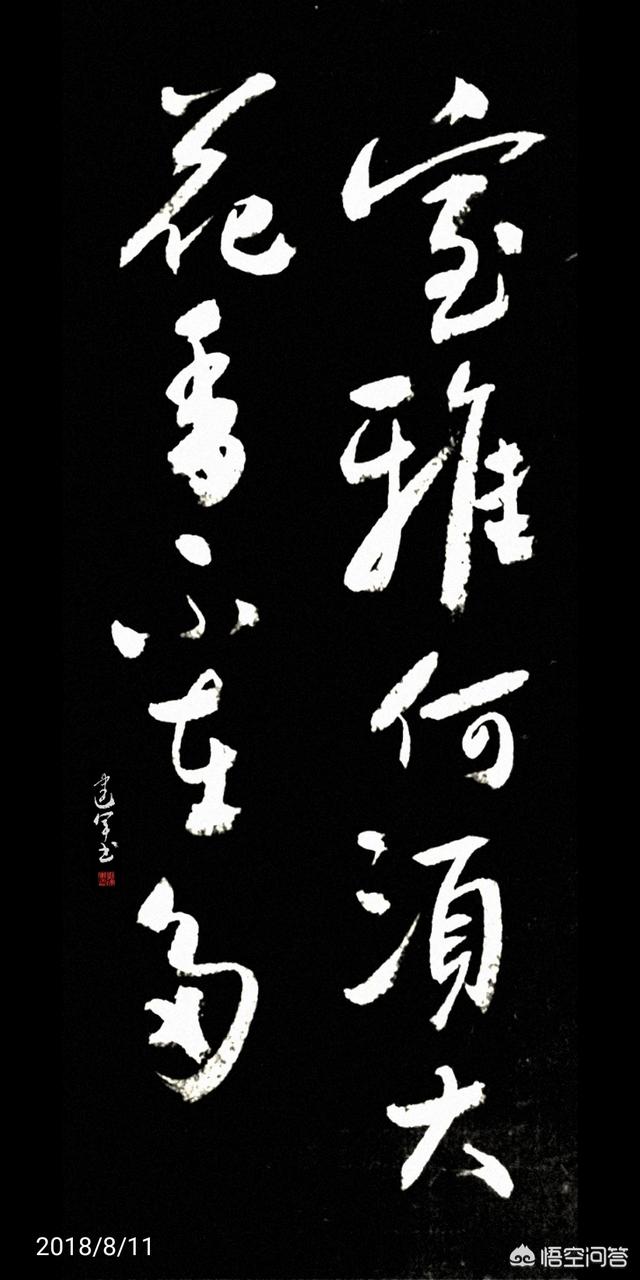 室雅何須大
花香不在多
建军书
2018/8/11
悟空问答